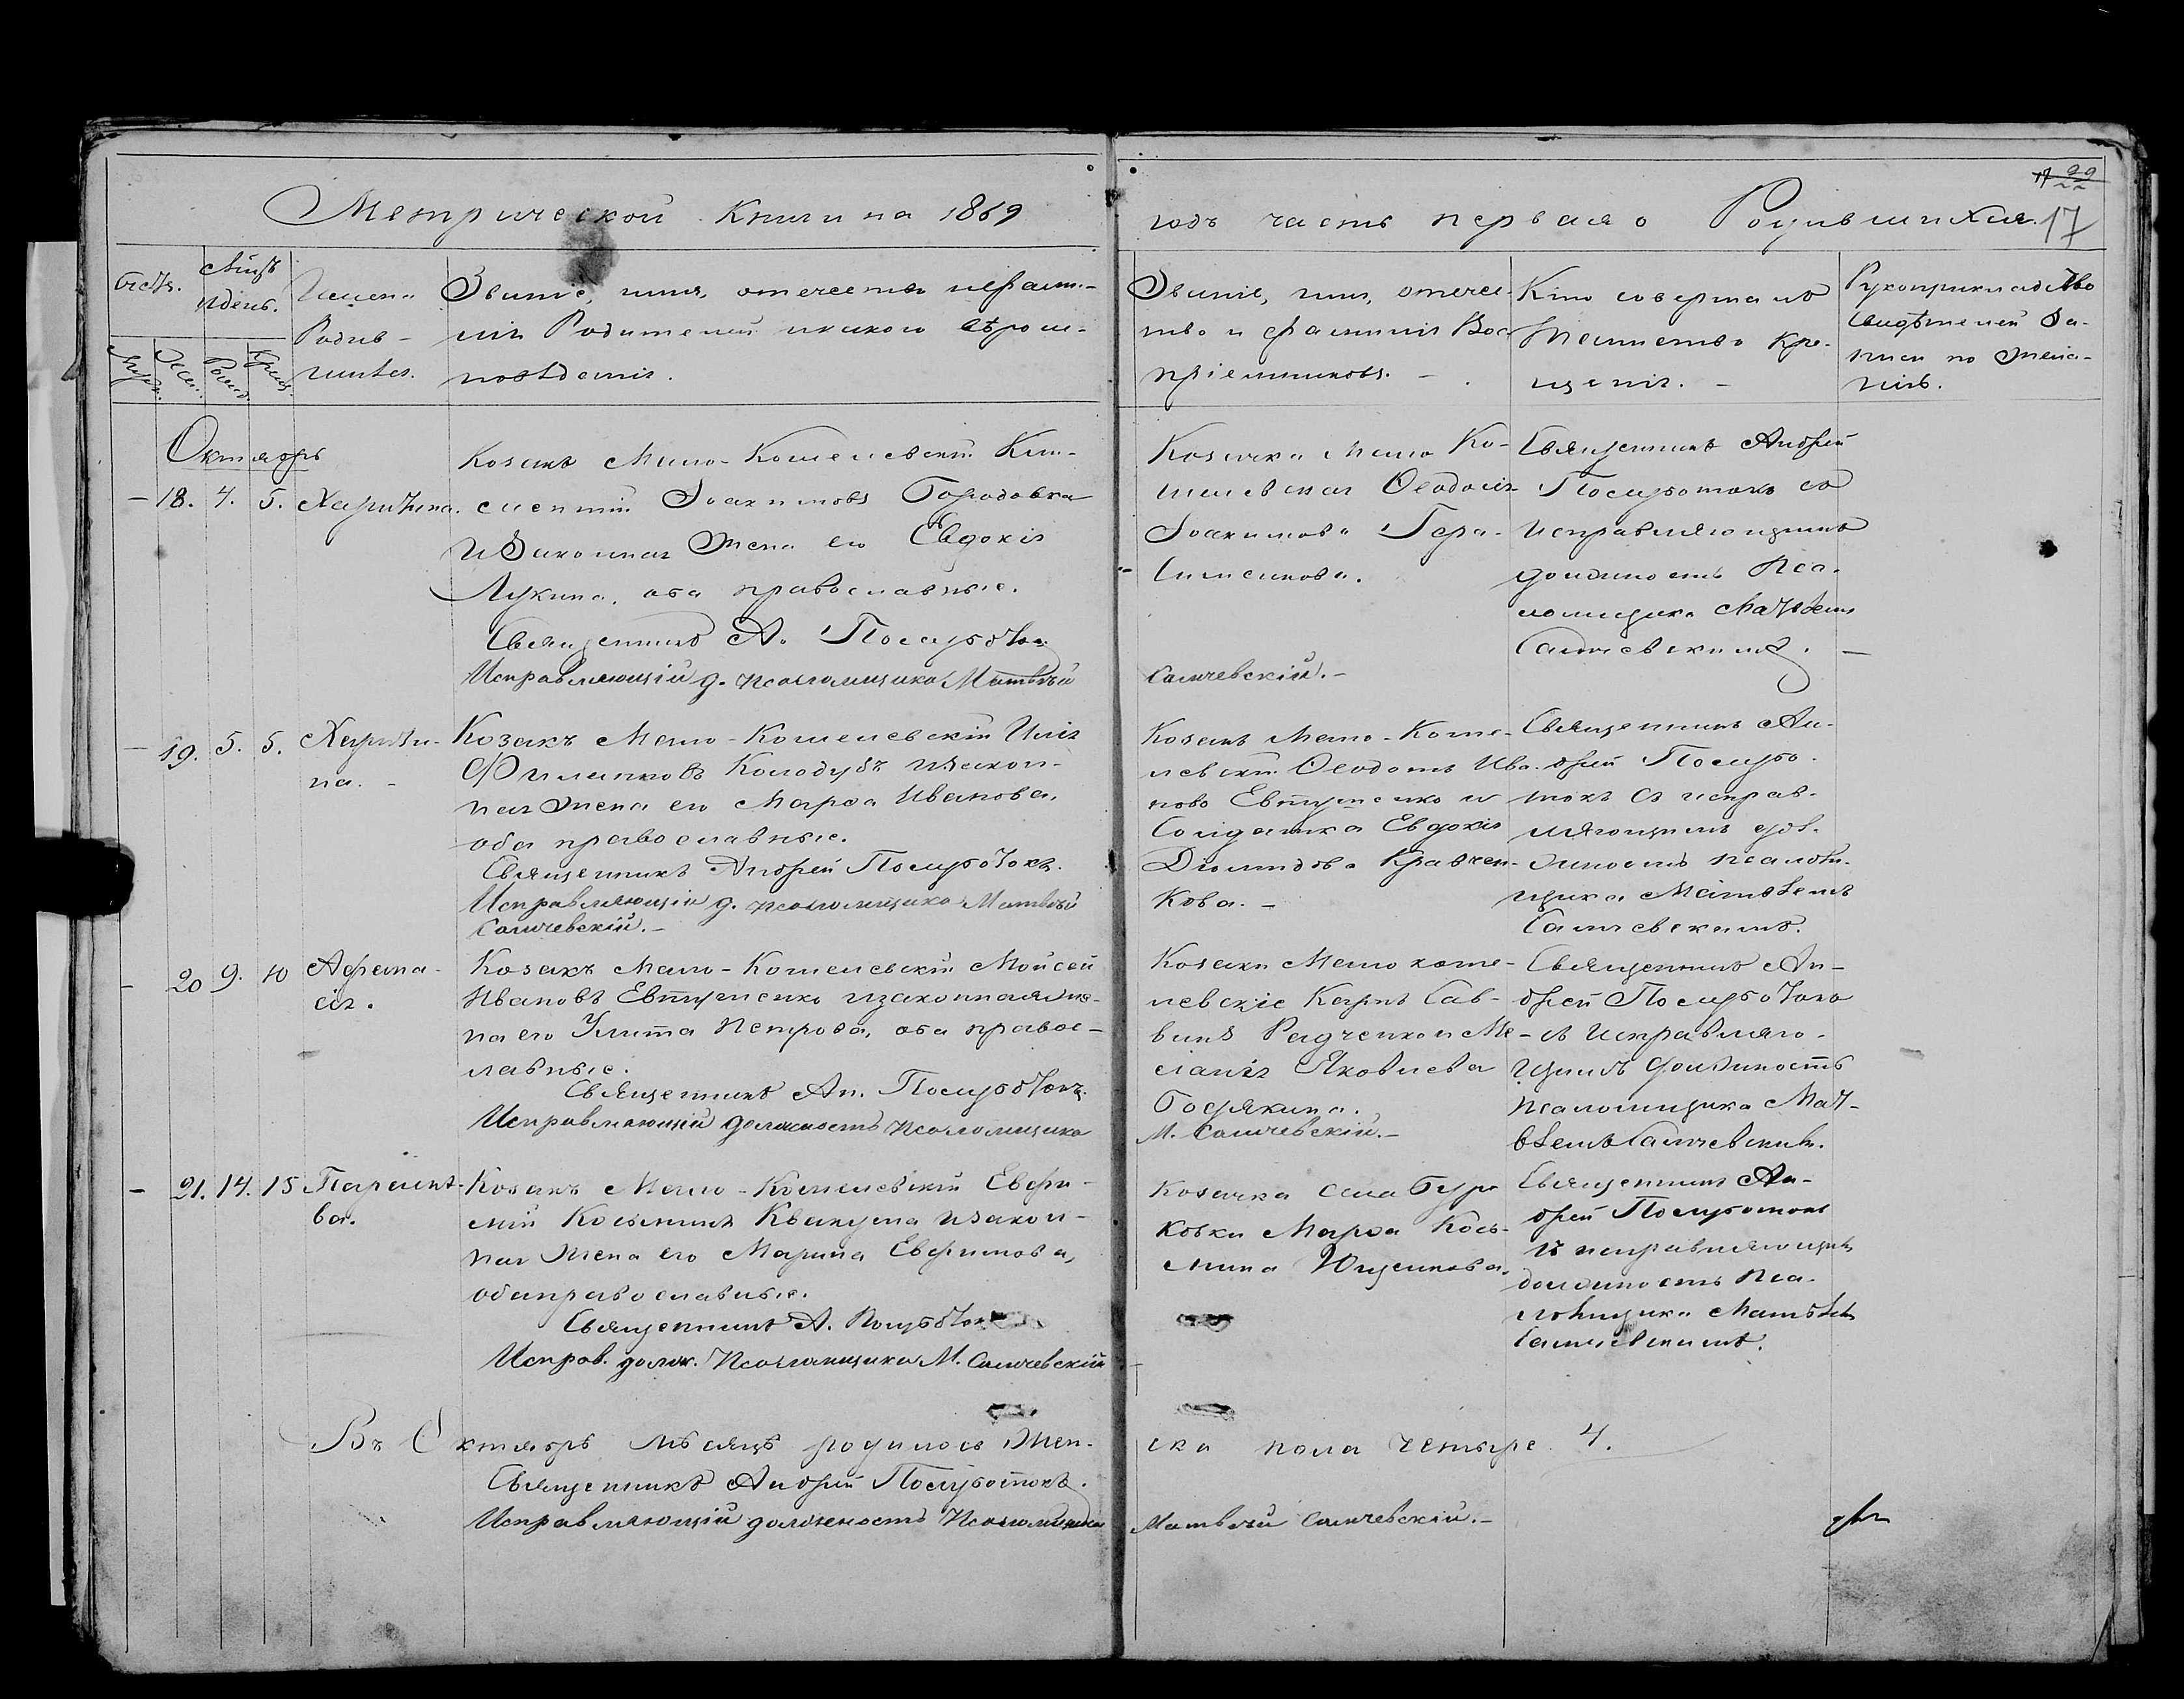 Метрической Книги на 1869
годъ часть первая о Родившихся. 17
Имена
Родив-
шихся.
Званіе, имя, отечество и фами-
лія Родителей и какого вѣрои-
повѣданія.
Званіе, имя, отече-
ство и фамилія Вос
пріемниковъ. -
Кто совершалъ
Таинство Кре-
щенія. -
Рукоприкладство
Свидѣтелей за-
писи по жела-
нію.
Октябрь
- 18. 4. 5. Харитина.
Козакъ Мало-Кошелевскій Кли-
ментій Іоакимовъ Городовка
и Законная Жена его Евдокія
Лукина, оба православные.
Священникъ А. Полуботокъ
Исправляющій д. псаломщика Матвѣй
Козачка Мало Ко-
шелевская Ѳеодосія
Іоакимова Гера-
сименкова.
Самчевскій.-
Священникъ Андрей
Полуботокъ со
исправляющимъ
должность Пса-
ломщика Матвѣемъ
Самчевскимъ. -
- 19. 5. 5. Харити-
на. -
Козакъ Мало-Кошелевскій Илія
Филиповъ Колодубъ и закон-
ная жена его Марѳа Иванова,
оба православные.
Священникъ Андрей Полуботокъ.
Исправляющій д. псаломщика Матвѣй
Самчевскій.-
Козакъ Мало-Коше-
левскій Ѳеодотъ Ива-
новъ Евтушенко и
Солдатка Евдокія
Діомидова Кравчен-
кова. -
Священникъ Ан-
дрей Полубо-
токъ съ исправ-
ляющимъ дол-
жность псалом-
щика Матвѣемъ
Самчевскимъ.
- 20 9. 10 Афана-
сія.
Козакъ Мало-Кошелевскій Мойсей
Ивановъ Евтушенко и законная же-
на его Улита Петрова, оба правос-
лавные.
Священникъ Ан. Полуботокъ.
Исправляющій должность псаломщика
Козаки Мало коше-
левскіе Карпъ Сав-
винъ Радченко и Ме-
ланія Яковлева
М. Самчевскій.-
Священникъ Ан-
дрей Полуботокъ
- съ Исправляю-
щимъ должность
псаломщика Мат-
вѣемъ Самчевскимъ.
- 21. 14. 15 Параске-
ва.
Козакъ Мало-Кошелевскій Евфи-
мій Косьминъ Квакуша и закон-
ная жена его Марина Евфимова,
оба православные.
Священникъ А. Полуботокъ
Исправ. долж. Псаломщика М. Самчевскій
Козачка села Бур
ковки Марѳа Кось-
мина Ющенкова.
Священникъ Ан-
дрей Полуботокъ
съ исправляющимъ
должность Пса-
ломщика Матвѣемъ
Самчевскимъ.
Въ Октябрѣ мѣсяцѣ родилось Жен-
ска пола четыре 4.
Священникъ Андрей Полуботокъ.
Исправляющій должность Псаломщика
Матвѣй Самчевскій.-